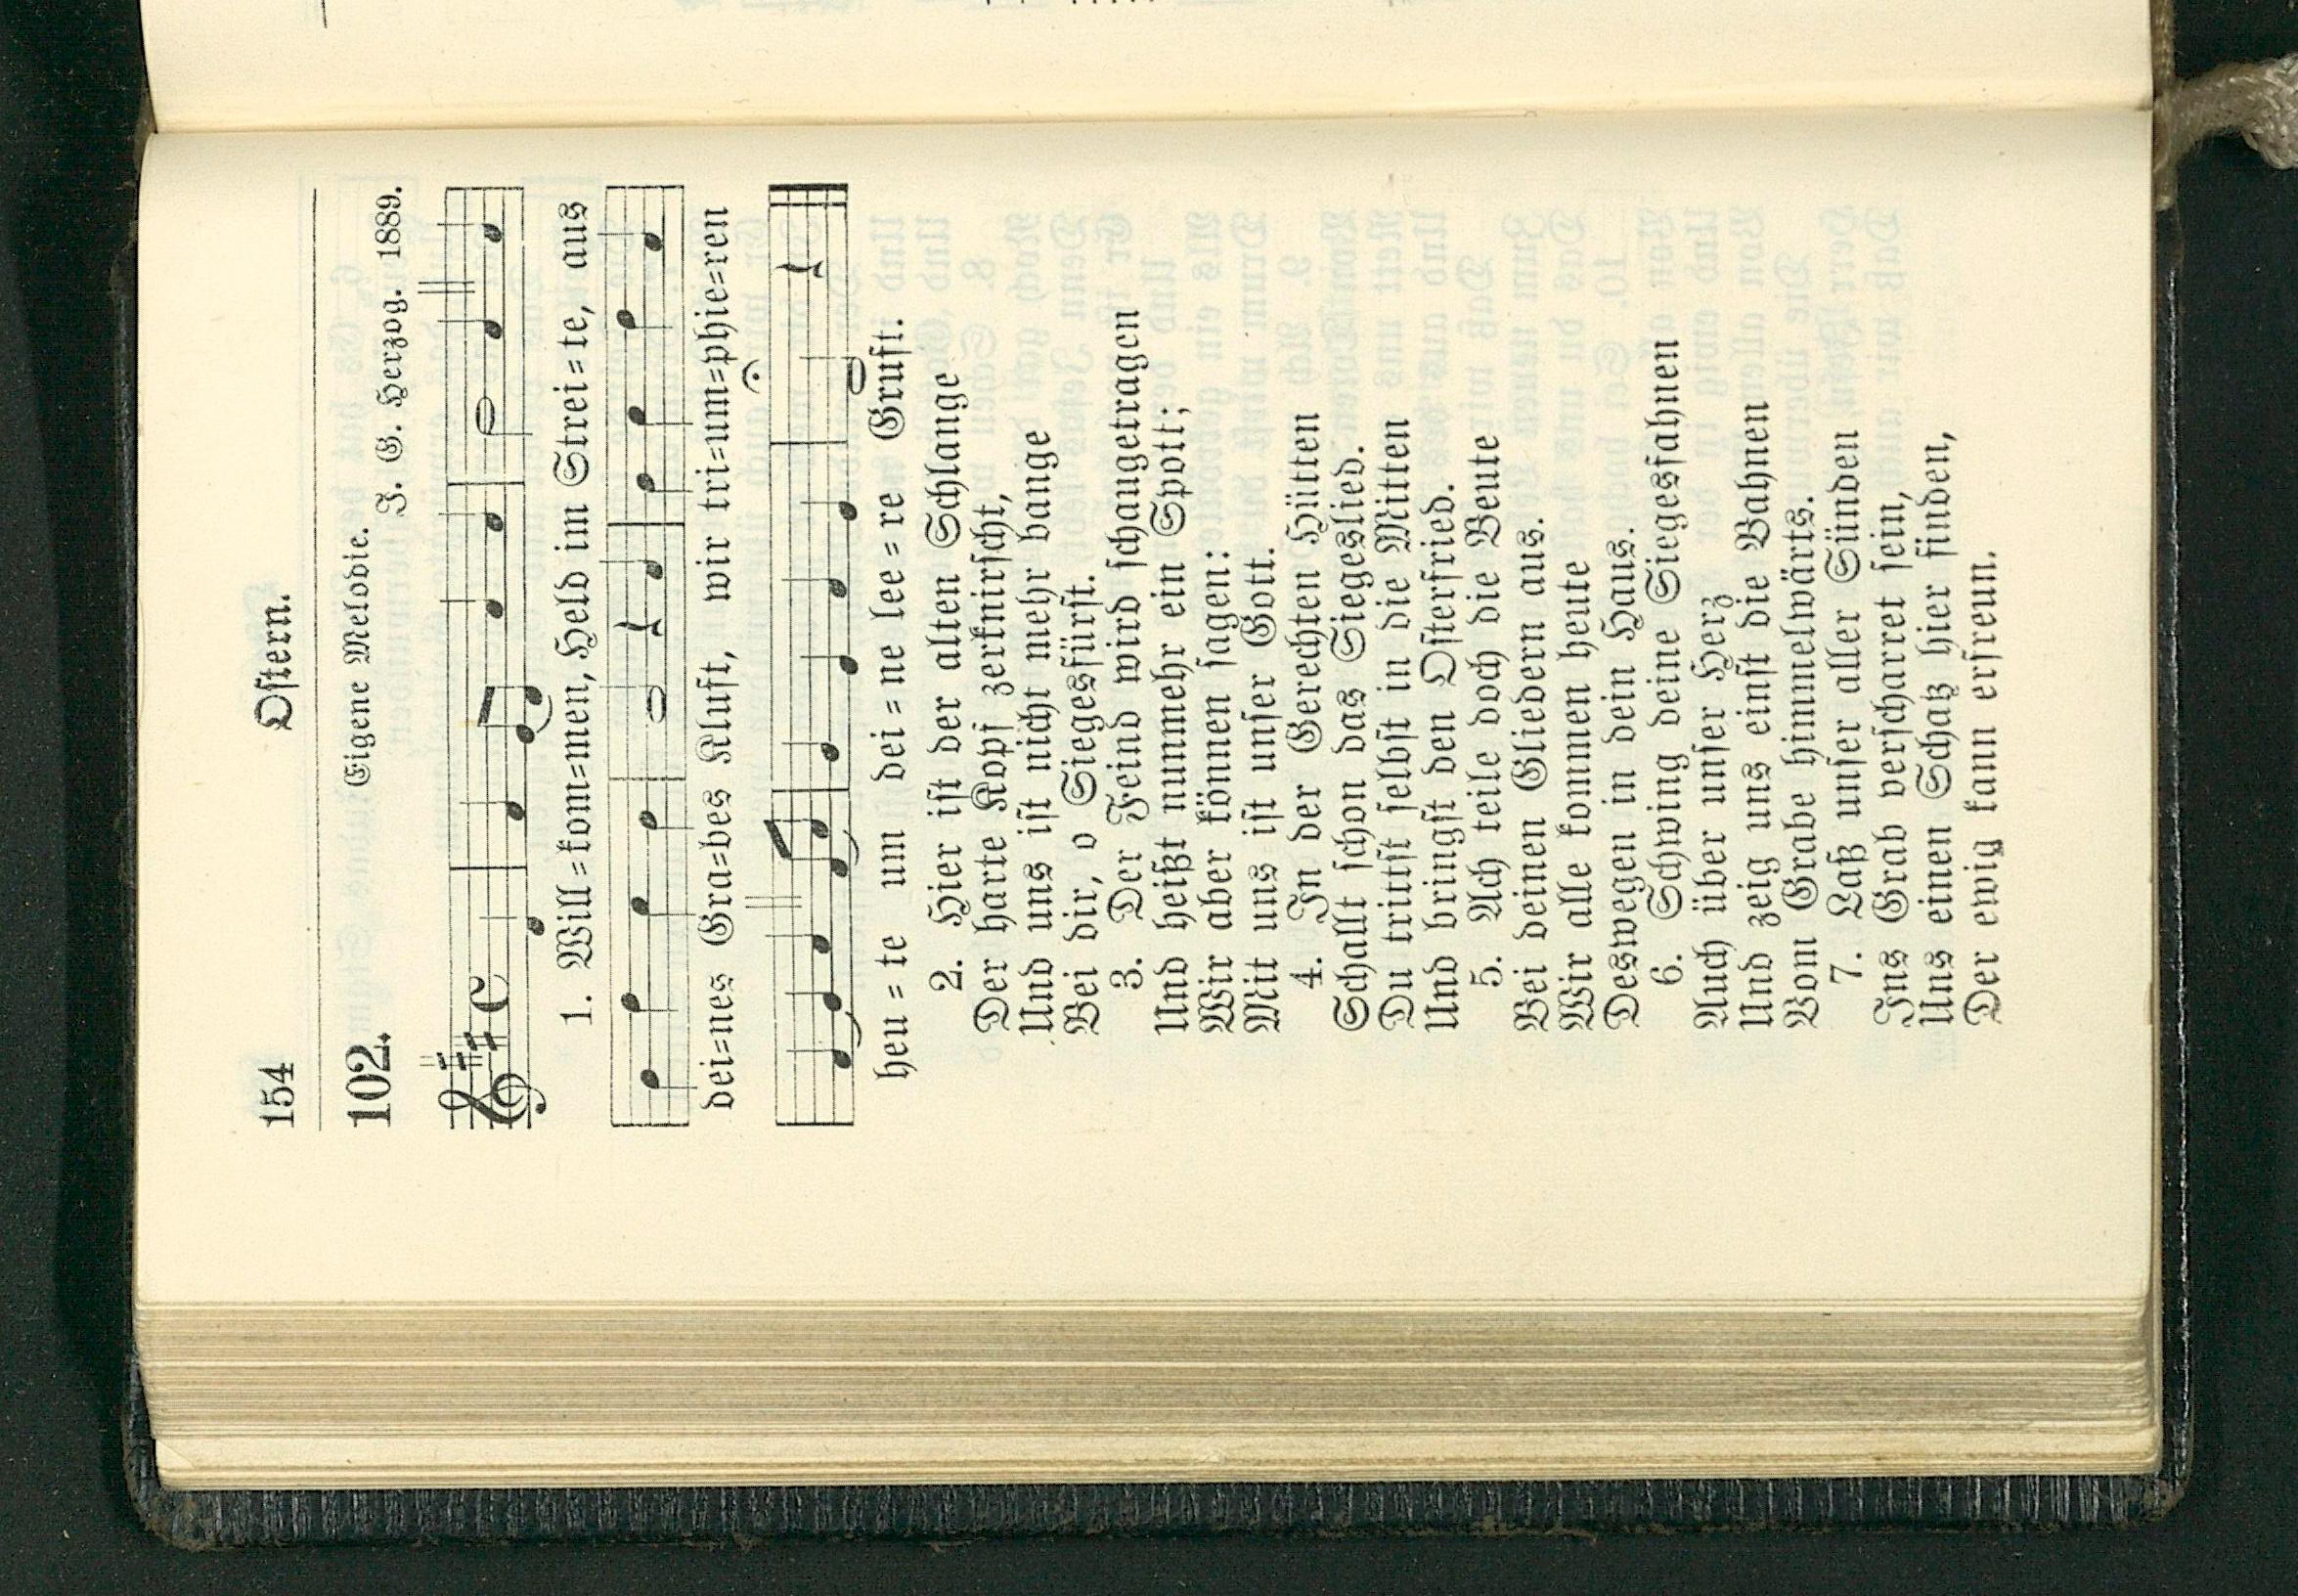 154 Ostern.
102. Eigene Melodie.
J. G. Herzog. 1889.
1. Will=kom=men, Held im Strei=te, aus
dei=nes Gra=bes Kluft, wir tri=um=phie=ren
heu=te um dei=ne lee=re Gruft.
2. Hier ist der alten Schlange
Der harte Kopf zerknirscht,
Und uns ist nicht mehr bange
Bei dir, o Siegesfürst.
3. Der Feind wird schaugetragen
Und heißt nunmehr ein Spott;
Wir aber können sagen:
Mit uns ist unser Gott.
4. In der Gerechten Hütten
Schallt schon das Siegeslied.
Du trittst selbst in die Mitten
Und bringst den Osterfried.
5. Ach teile doch die Beute
Bei deinen Gliedern aus.
Wir alle kommen heute
Deswegen in dein Haus.
6. Schwing deine Siegesfahnen
Auch über unser Herz
Und zeig uns einst die Bahnen
Vom Grabe himmelwärts.
7. Laß unser aller Sünden
Ins Grab verscharret sein,
Uns einen Schatz hier finden,
Der ewig kann erfreun.